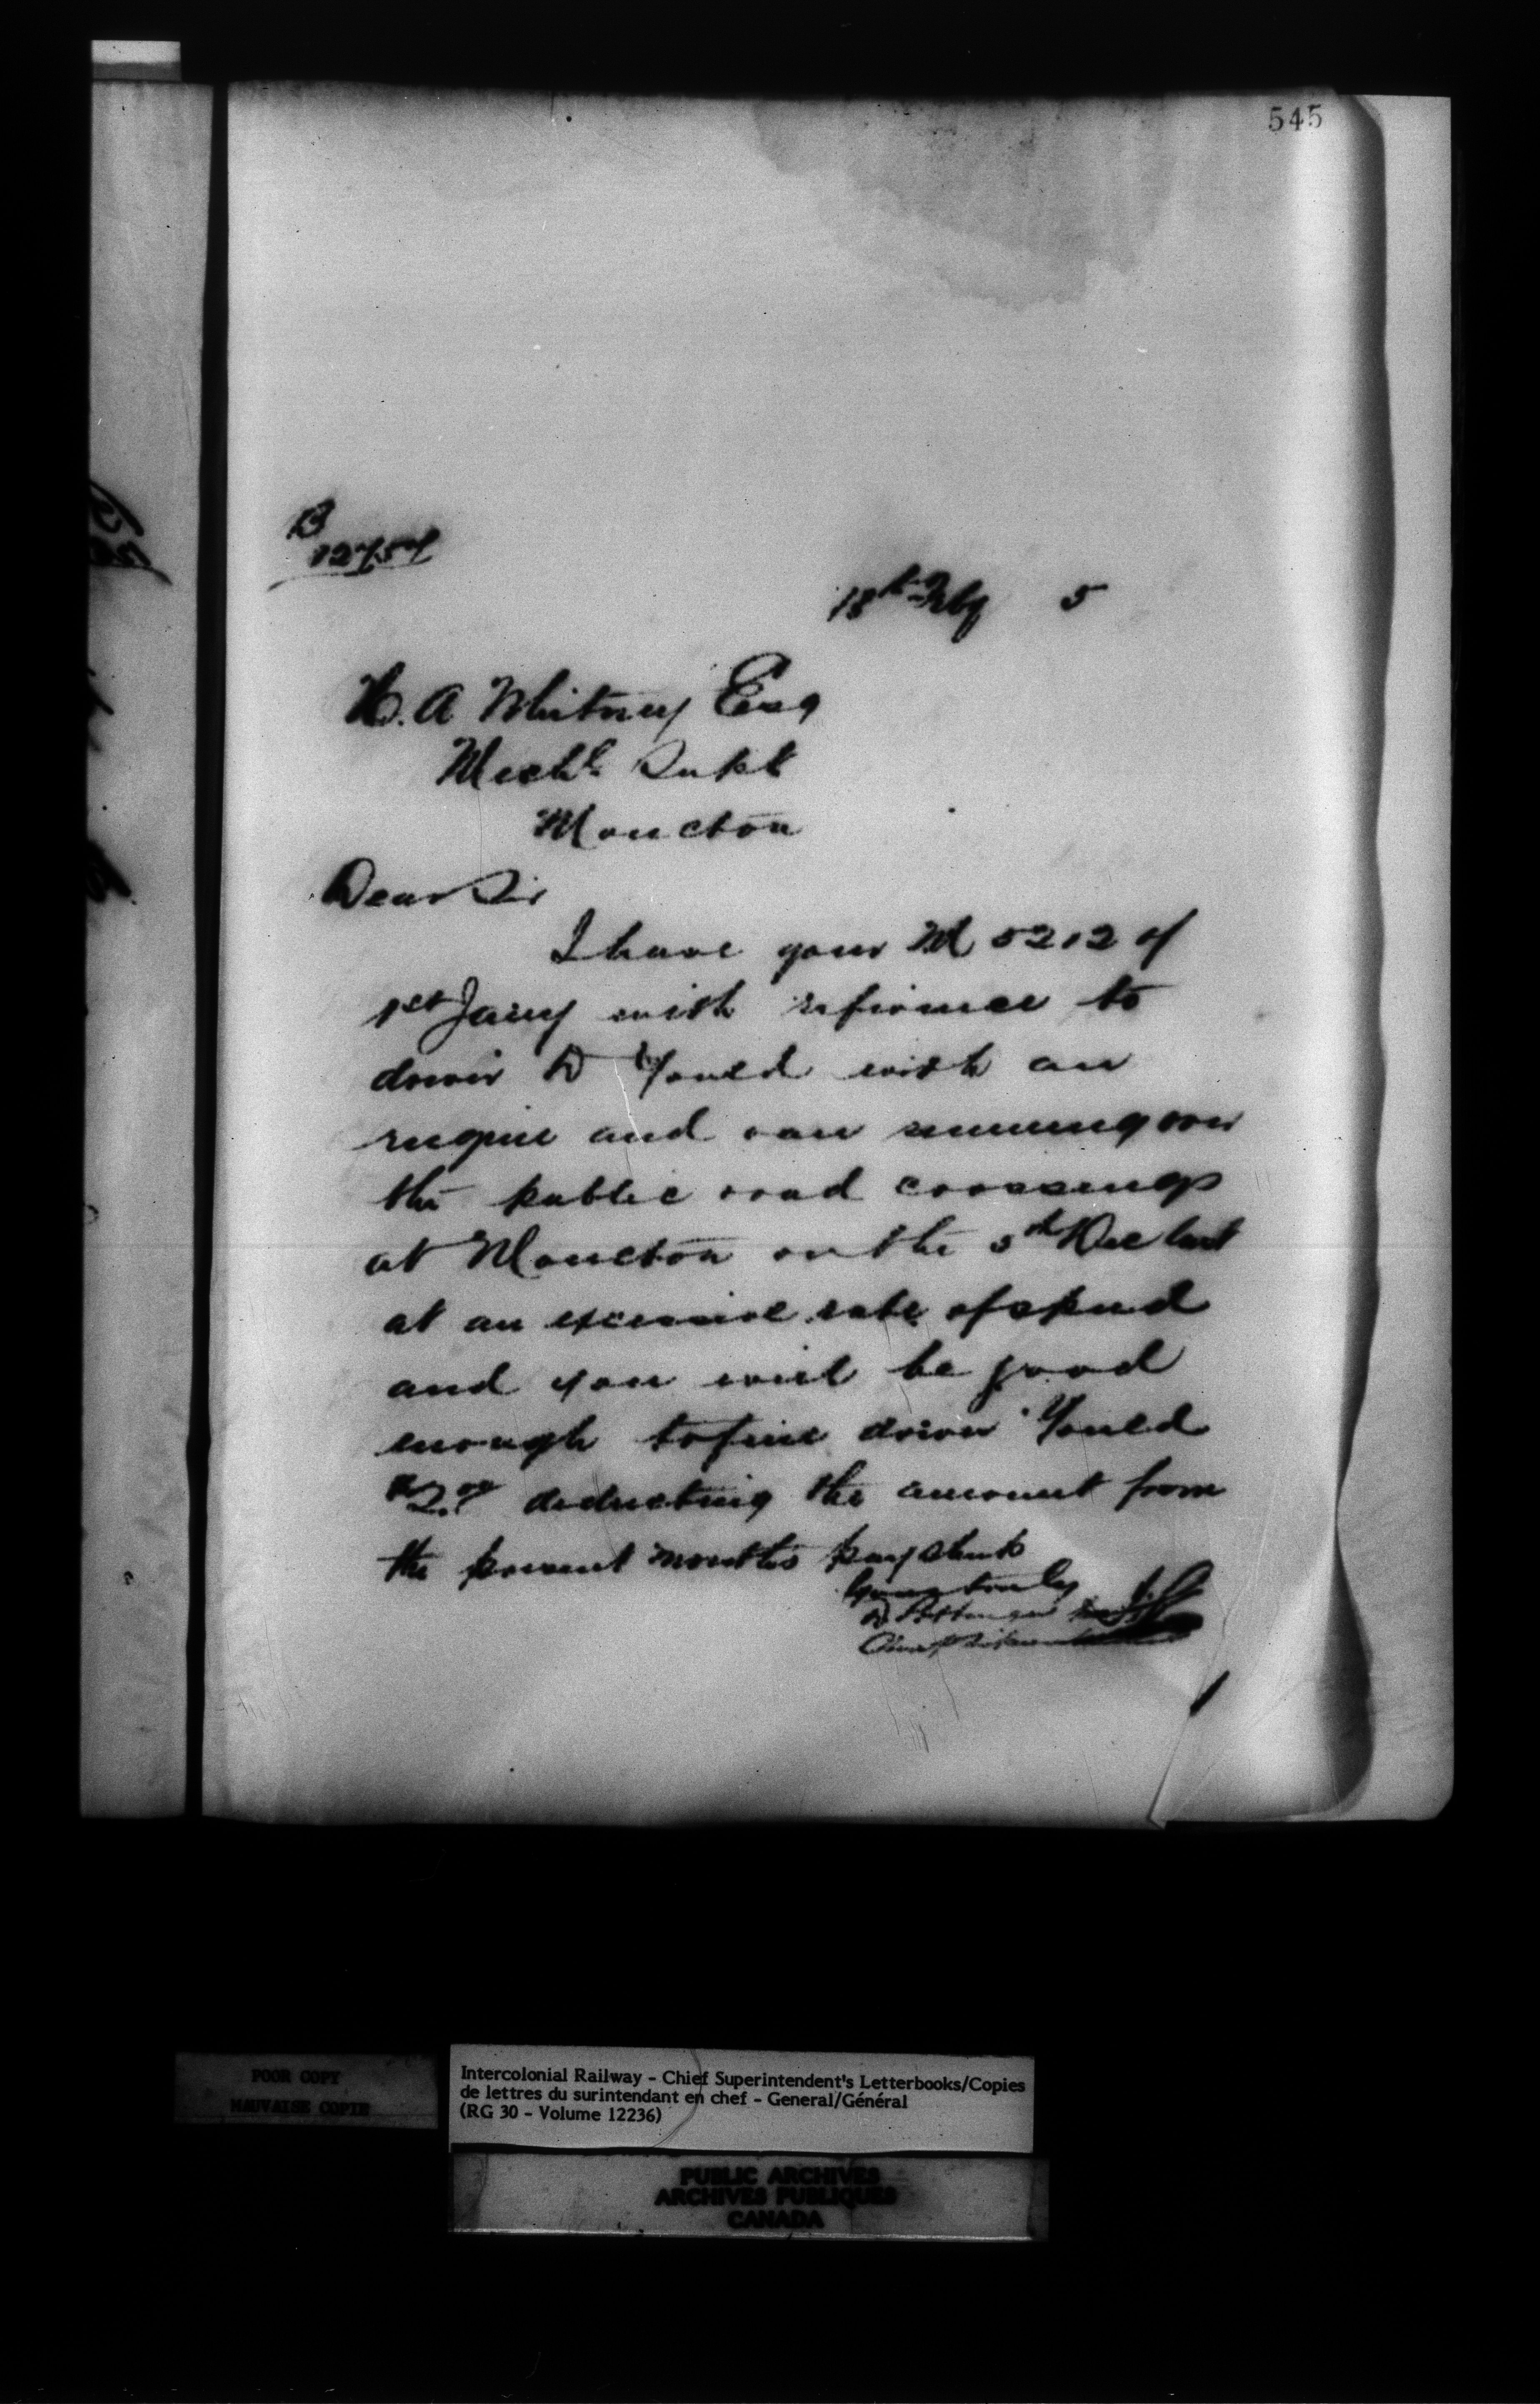 545
B
12754
18th Feby 5
H. A Whitney Esq
Mechl Supt
Moncton
Dear Sir
I have your M 5212 of
1st Jany with reference to
driver D Yould with an
engine and van running over
the public road crossings
at Moncton on the 5th Dec last
at an excessive rate of speed
and you will be good
enough to fine driver Yould
$2.00 deducting the amount from
the present months pay sheets
Yours truly
D Pottinger
Chief Superintendent
POOR COPY
MAUVAISE COPIE
Intercolonial Railway - Chief Superintendent's Letterbooks/Copies
de lettres du surintendant en chef - General/Général
(RG 30 - Volume 12236)
PUBLIC ARCHIVES
ARCHIVES PUBLIQUES
CANADA